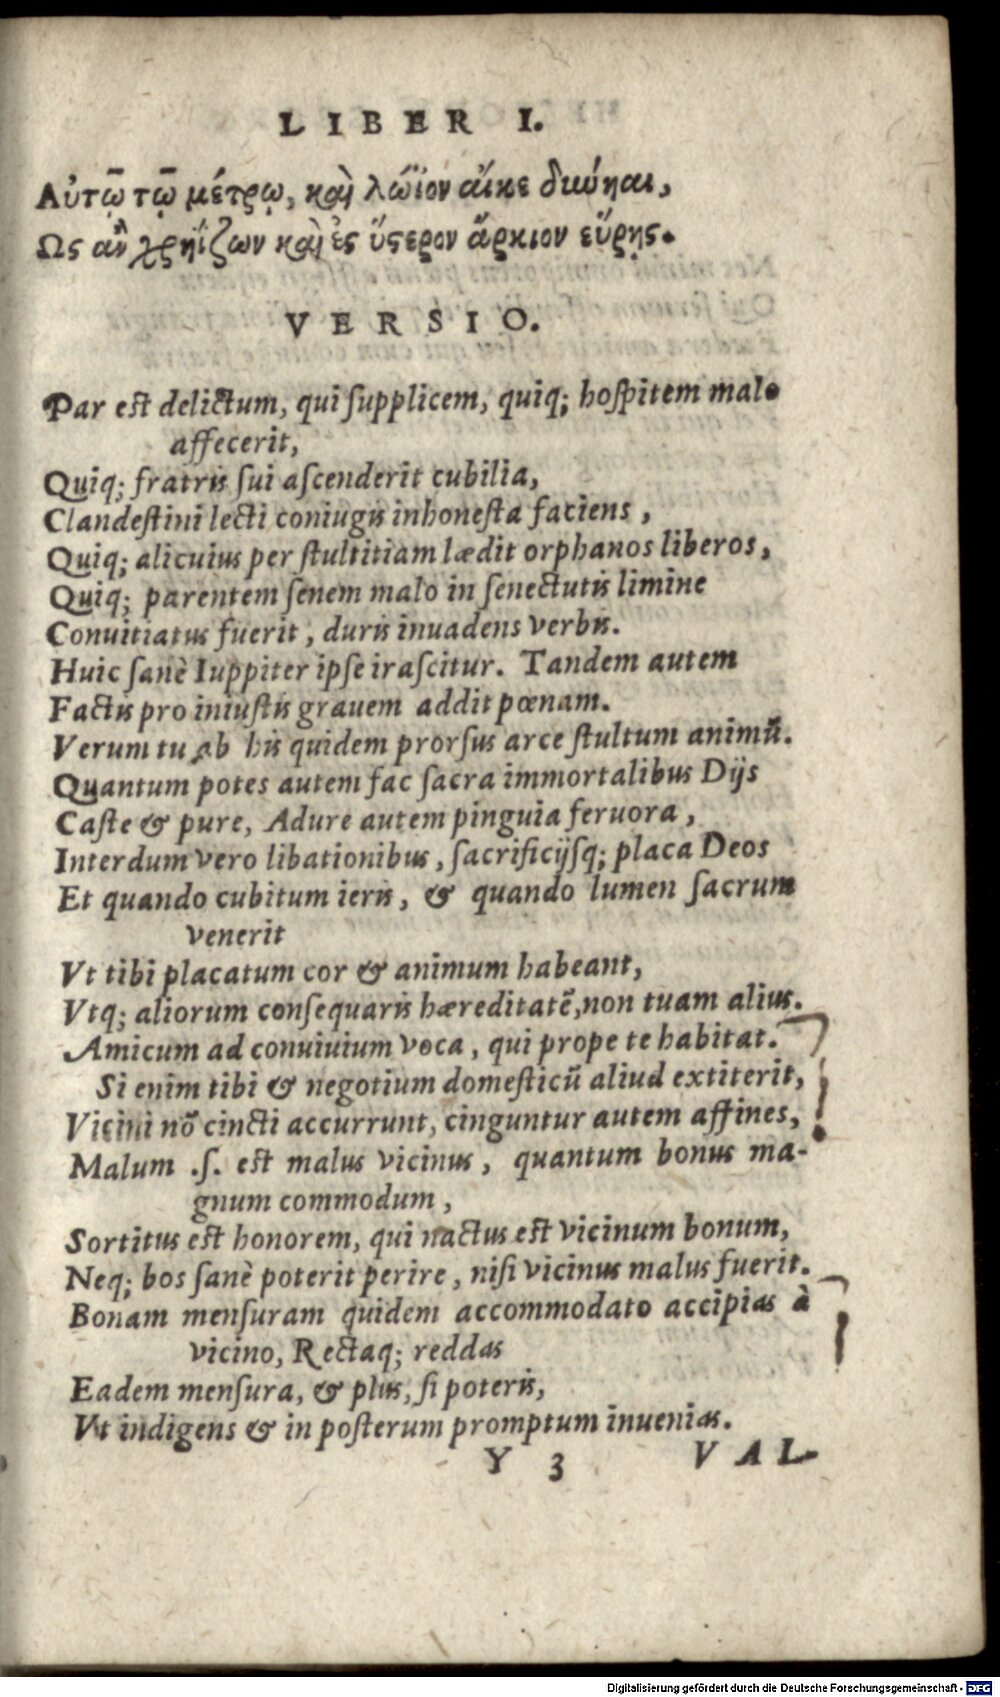 LIBER I.
Αὐτῷ τῷ μέτρῳ, καὶ λώϊον αἴκε δύνηαι,
Ως ἂν χρηΐζων καὶ ἐς ὕστερον ἄρκιον εὕρῃς.
VERSIO.
Par est delictum, qui ſupplicem, quiq; hoſpitem malo
affecerit,
Quiq; fratris ſui aſcenderit cubilia,
Clandeſtini lecti coniugis inhoneſta faciens,
Quiq; alicuius per ſtultitiam lædit orphanos liberos,
Quiq; parentem ſenem malo in ſenectutis limine
Conuitiatus fuerit, duris inuadens verbis.
Huic ſanè Iuppiter ipſe iraſcitur. Tandem autem
Factis pro iniuſtis grauem addit pœnam.
Verum tu ab his quidem prorſus arce ſtultum animũ.
Quantum potes autem fac ſacra immortalibus Dijs
Caſte & pure, Adure autem pinguia feruora,
Interdum vero libationibus, ſacrificijſq; placa Deos
Et quando cubitum ieris, & quando lumen ſacrum
venerit
Vt tibi placatum cor & animum habeant,
Vtq; aliorum conſequaris hæreditatẽ, non tuam alius.
Amicum ad conuiuium voca, qui prope te habitat.
Si enim tibi & negotium domeſticũ aliud extiterit,
Vicini nõ cincti accurrunt, cinguntur autem affines,
Malum .ſ. est malus vicinus, quantum bonus ma-
gnum commodum,
Sortitus est honorem, qui nactus est vicinum bonum,
Neq; bos ſanè poterit perire, niſi vicinus malus fuerit.
Bonam menſuram quidem accommodato accipias à
vicino, Rectaq; reddas
Eadem menſura, & plus, ſi poteris,
Vt indigens & in poſterum promptum inuenias.
Y 3 VAL-
Digitalisierung gefördert durch die Deutsche Forschungsgemeinschaft - DFG